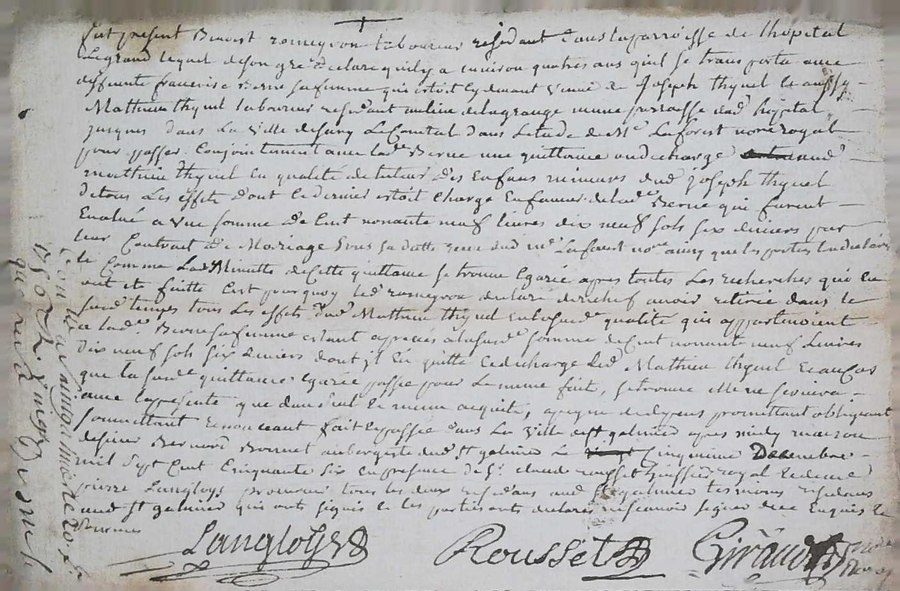 fut present Benoist romeyron laboureur residant dans la parroisse de l'hopital
le grand lequel de son gre declare quil y a environ quatres ans quil se transporta avec
deffunte francoise Berne sa femme qui estoit cy devant veuve de Joseph thyvel et aussy
Mathieu thyvel laboureur residant au lieu de lagrange meme parroisse dud hopital
jusques dans la ville de sury le Comtal dans letude de Me Laforest nore royal
pour passer Conjointement avec lade Berne une quittance ou decharge aud
mathieu thyvel en qualité de tuteur des Enfans mineurs dud joseph thyvel
de tous les effets dont ce dernier estoit chargé en faveur de lade Berne qui furent
Evalué a une somme de Cent nonante neuf livres dix neuf sols six deniers par
leur Contract de Mariage sous sa datte receu dud me Laforest nore ainsy que les parties lont declaré
et Comme lade Minutte de cette quittance se trouve Egarée apres toutes les recherches qui en
ont eté faitte C'est pourquoy led romeyron declare derechef avoir retirée dans le
susd temps tous les effets dud Mathieu thyvel en lad qualité qui appartenoient
a lade Berne sa femme estant apreciés a la susde somme de Cent nonante neuf Livres
dix neuf sols six deniers dont il En quitte et decharge led Mathieu thyvel Et au Cas
que la susde quittance egarée passée pour le meme fait, se trouve elle ne servira
avec la presente que dun seul et meme acquité, a peyne de depens promettant obligeant
soumettant renonceant fait et passé dans la ville de st galmier apres midy maison
de sieur Bernard Bonnet aubergiste dud st galmier le Cinquieme Decembre
mil sept Cent Cinquante six en presence de Sr claude rousset huissier royal et de me
pierre Langloys procureur tous les deux residans aud st galmier tesmoins residans
aud st galmier qui ont signés et les parties ont declaré ne scavoir signer de ce Enquis et
sommés
Langloys
Rousset
Giraud
nore